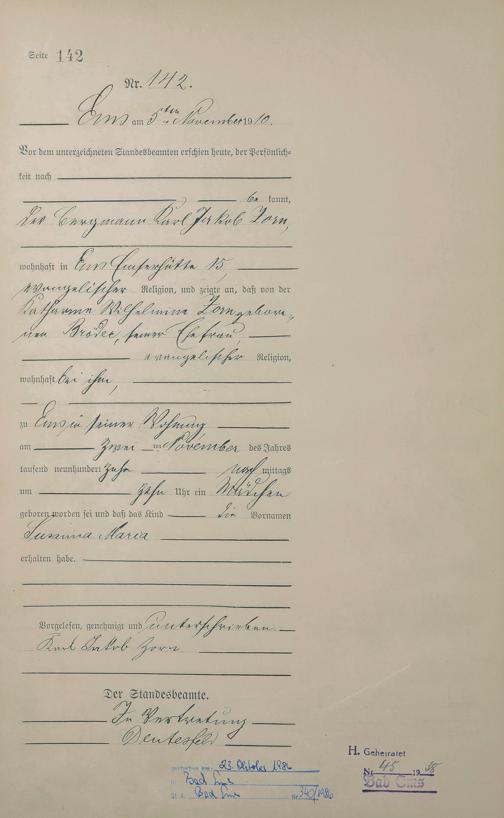 Seite 142
Nr. 142.
Ems am 5ten November 1910.
Vor dem unterzeichneten Standesbeamten erschien heute, der Persönlich-
keit nach
be kannt,
der Bergmann Karl Jakob Zorn,
wohnhaft in Ems Emserhütte 15,
evangelischer Religion, und zeigte an, daß von der
Katharine Wilhelmine Zorn gebore-
nen Bröder, seiner Ehefrau,
evangelischer Religion,
wohnhaft bei ihm,
zu Ems in seiner Wohnung
am zwei ten November des Jahres
tausend neunhundert zehn nach mittags
um zehn Uhr ein Mädchen
geboren worden sei und daß das Kind die Vornamen
Susanna Maria
erhalten habe.
Vorgelesen, genehmigt und unterschrieben
Karl Jakob Zorn
Der Standesbeamte.
In Vertretung
23. Oktober 1986
in Bad Ems
Bad Ems Nr. 340/1986
H. Geheiratet
Nr. 45 1938
Bad Ems